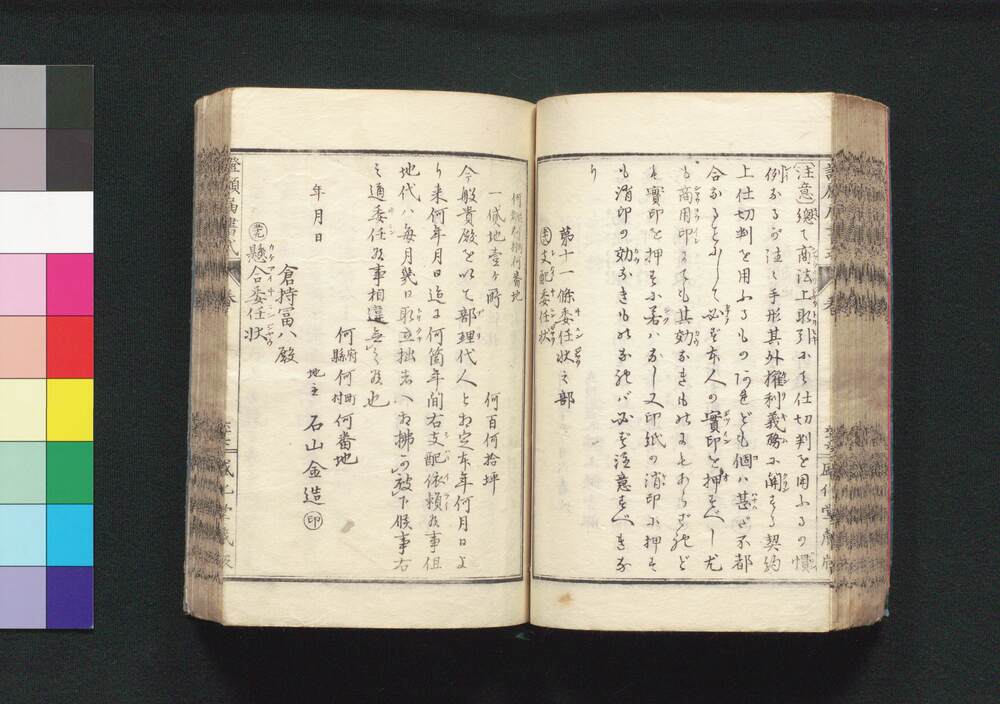 注意 總て商法上取引にて仕切判を用ふるの慣
例あるが注に手形其外權利義務に關する契約
上仕切判を用ふるもの あれども個は甚だ不都
合なることにして必ず本人の實印を押すべし尤
も商用印にても其効なきものにもあらざれど
も實印を押すに若はなし又印紙の消印に押す
も消印の効なきものなれば必ず注意すべきな
り
第十一條委任状之部
支配委任状
何郡何村何番地
一貸地壹ヶ所 何百何拾坪
今般貴殿を以て部理代人と相定本年何月日よ
り来何年月日迄に何箇年間右支配依頼候事但
地代ハ毎月幾日取立拙者へ相拂可被下候事右
之通委任候事相違無之候也
何府縣何町村何番地
年月日 地主 石山金造 印
倉持冨八殿
懸合委任状